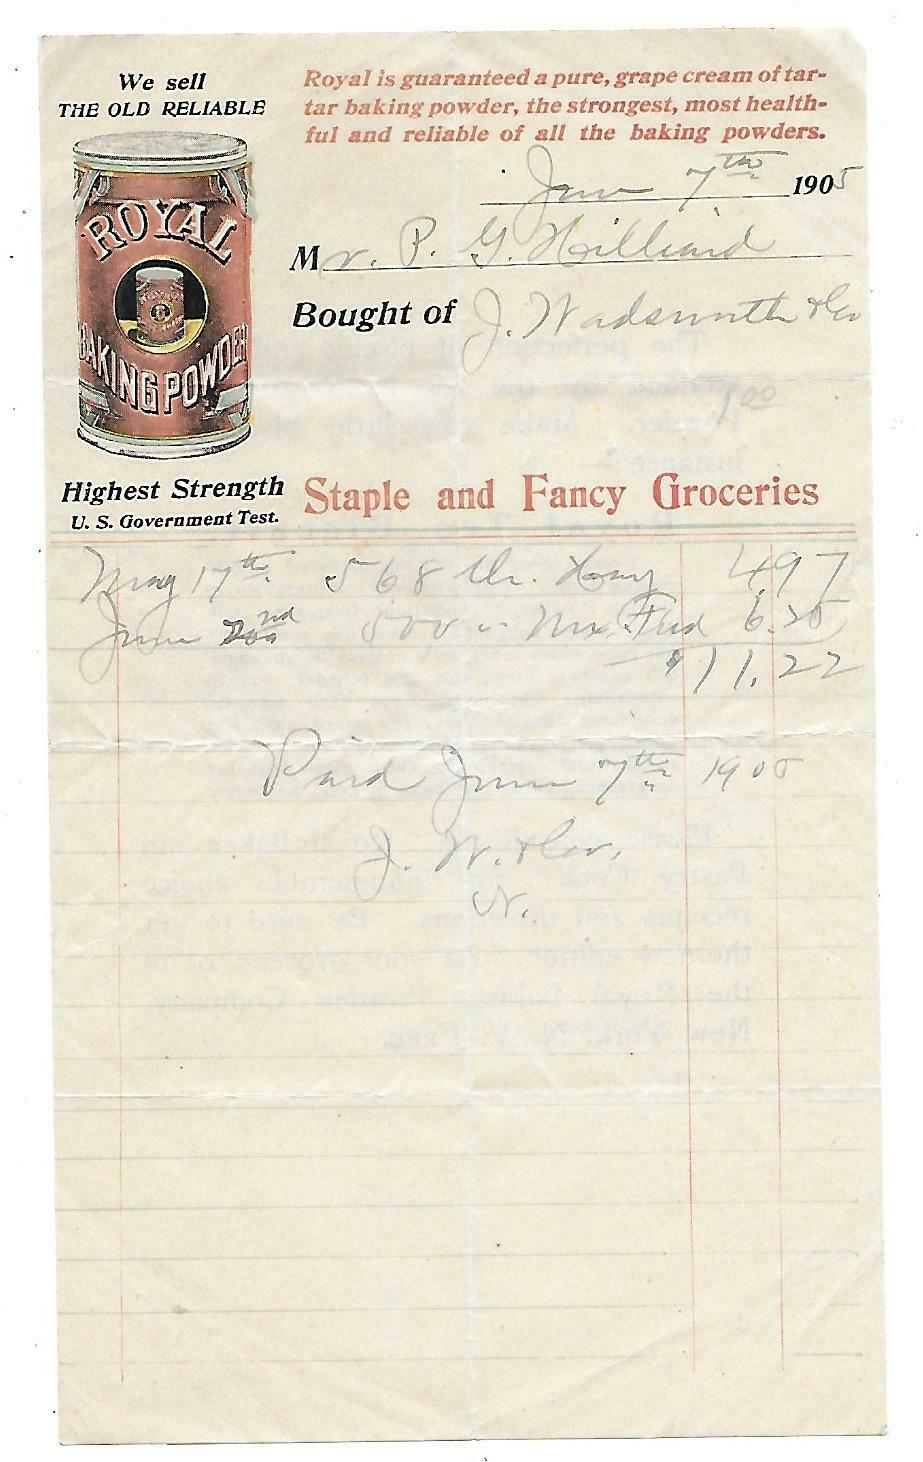 We sell
THE OLD RELIABLE
ROYAL
BAKING POWDER
Highest Strength
U. S. Government Test.
Royal is guaranteed a pure, grape cream of tar-
tar baking powder, the strongest, most health-
ful and reliable of all the baking powders.
June 7th 1905
Mr. P. G. Hilliard
Bought of J. Wadsworth & Co
Staple and Fancy Groceries
May 17th 568 lbs. Hay 4.97
June 2nd 500 " Mix. Feed 6.25
$11.22
Paid June 7th 1905
J. W. & Co.